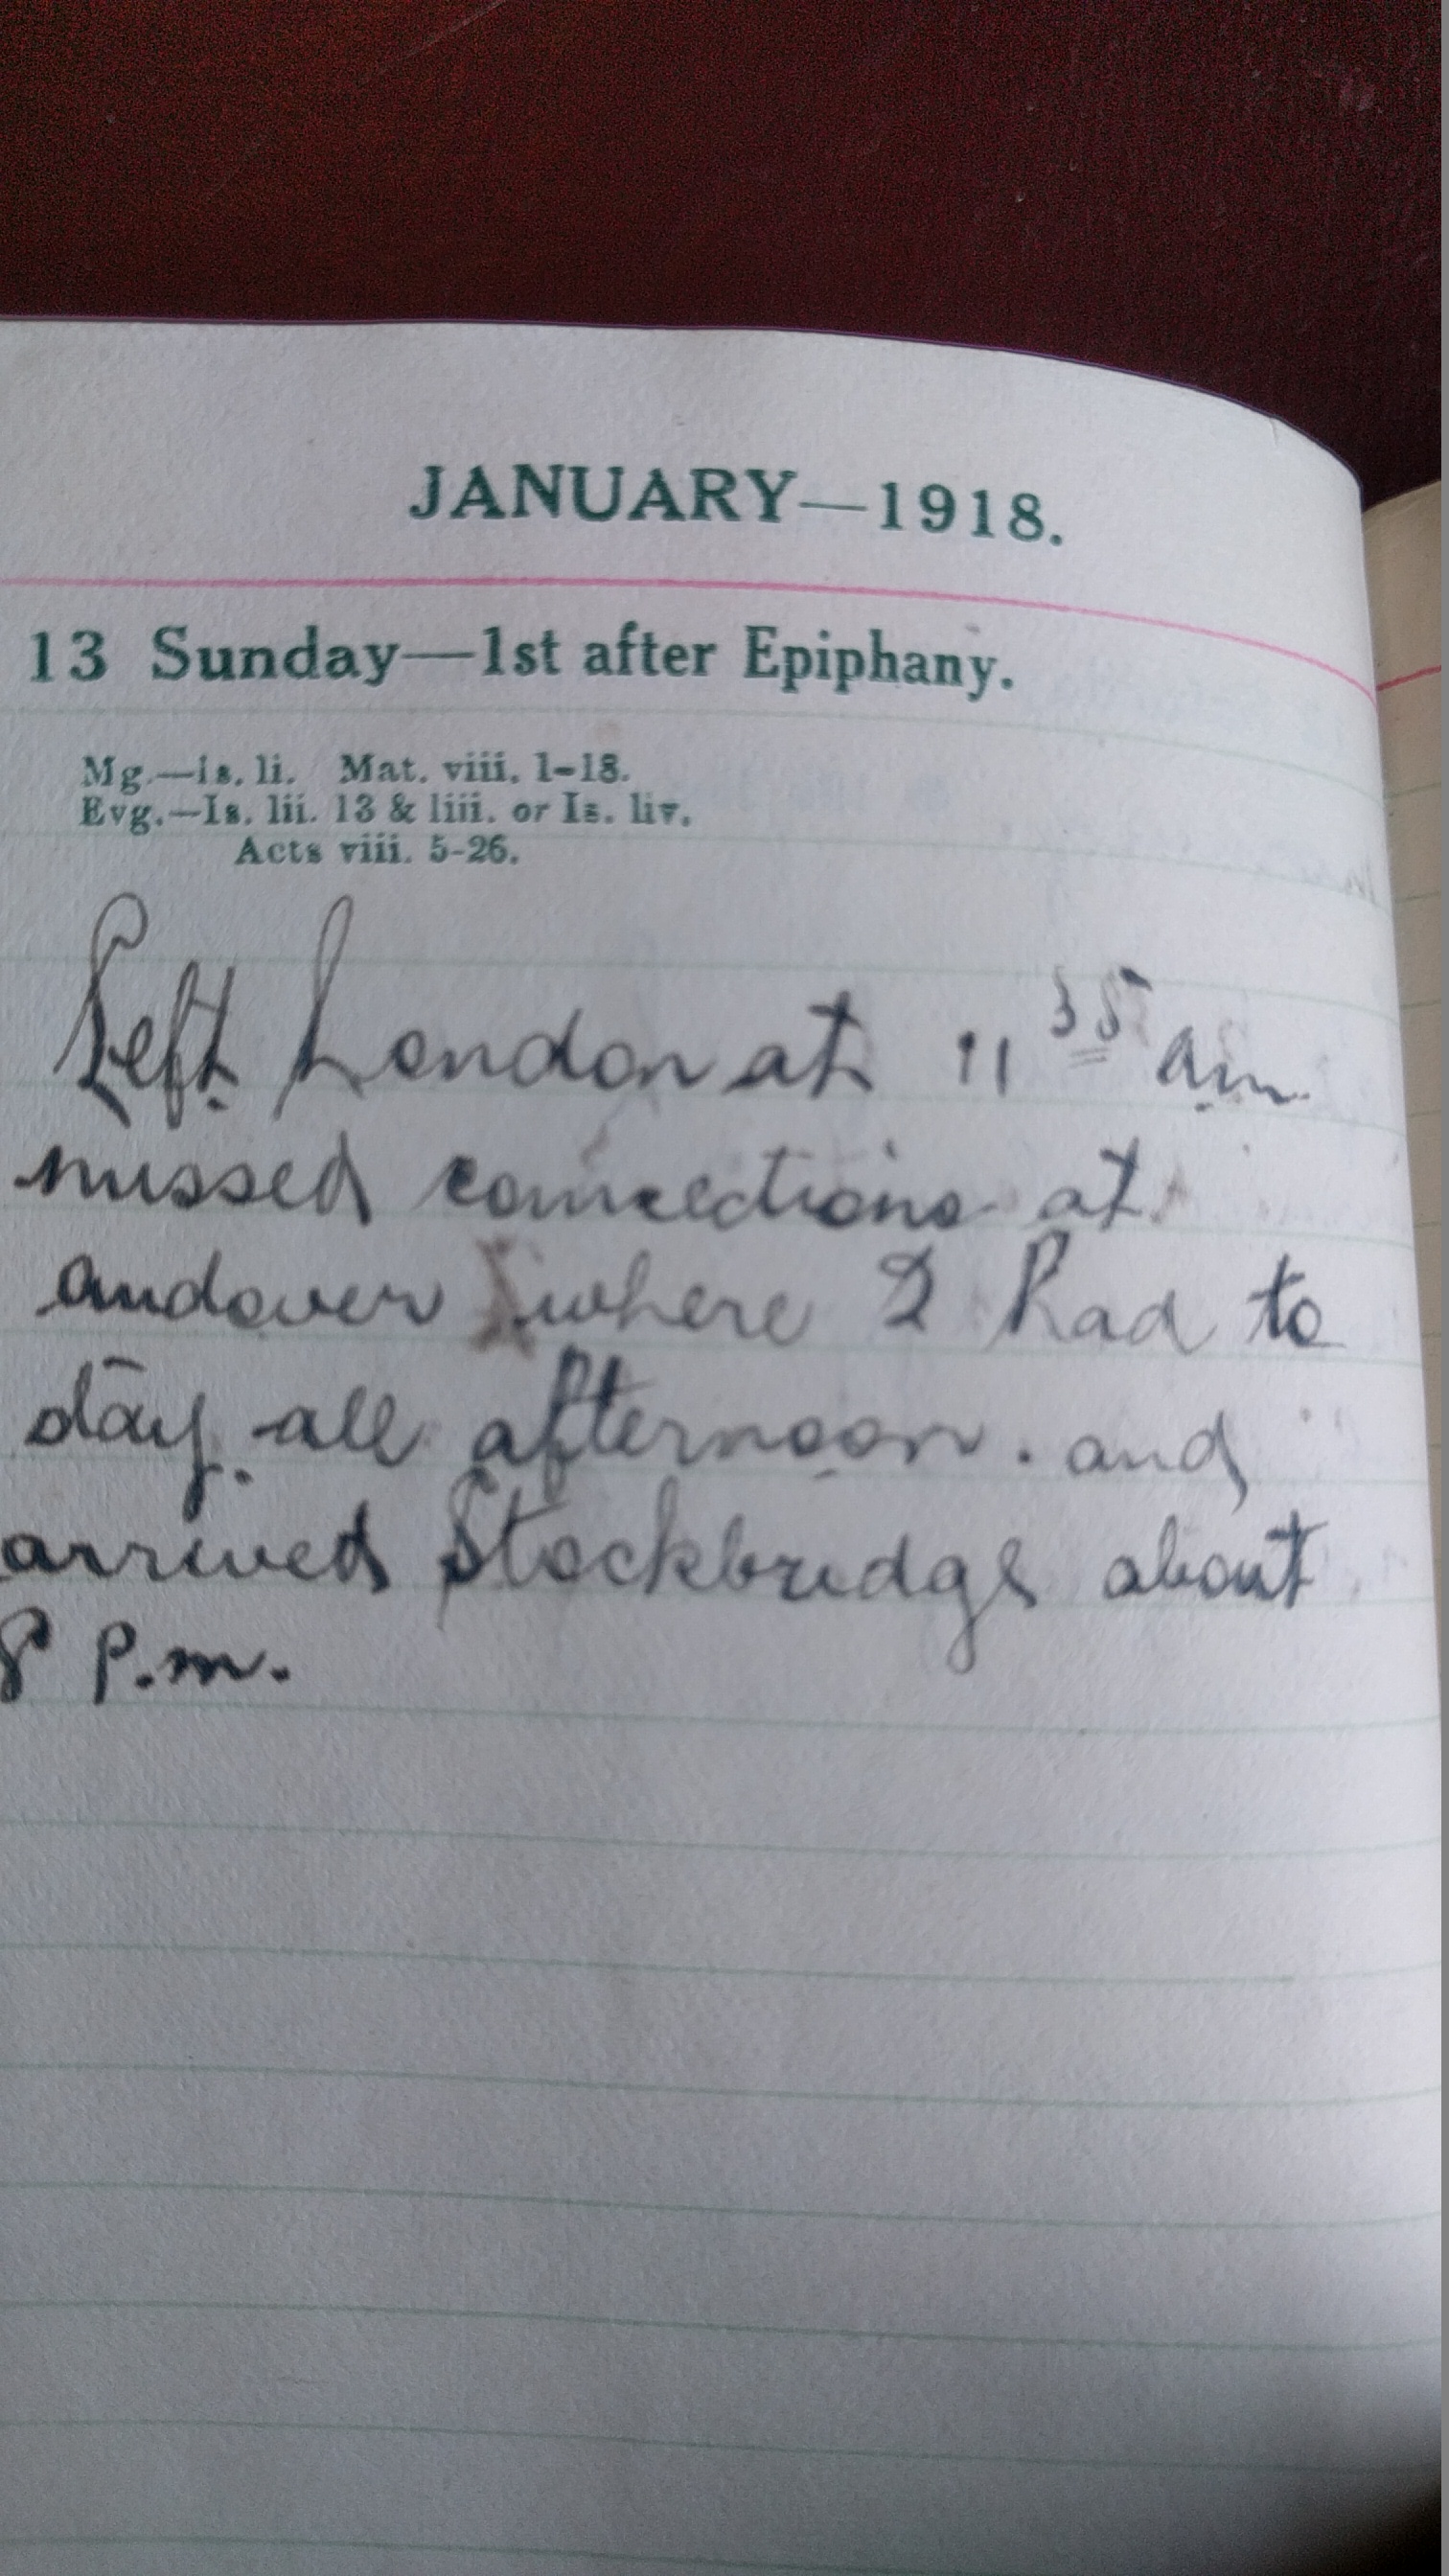 JANUARY—1918.
13 Sunday—1st after Epiphany.
Mg.—Is. li. Mat. viii. 1-18.
Evg.—Is. lii. 13 & liii. or Is. liv.
Acts viii. 5-26.
Left London at 11 35 am
missed connections at
andover where I had to
stay all afternoon. and
arrived Stockbridge about
8 P.m.